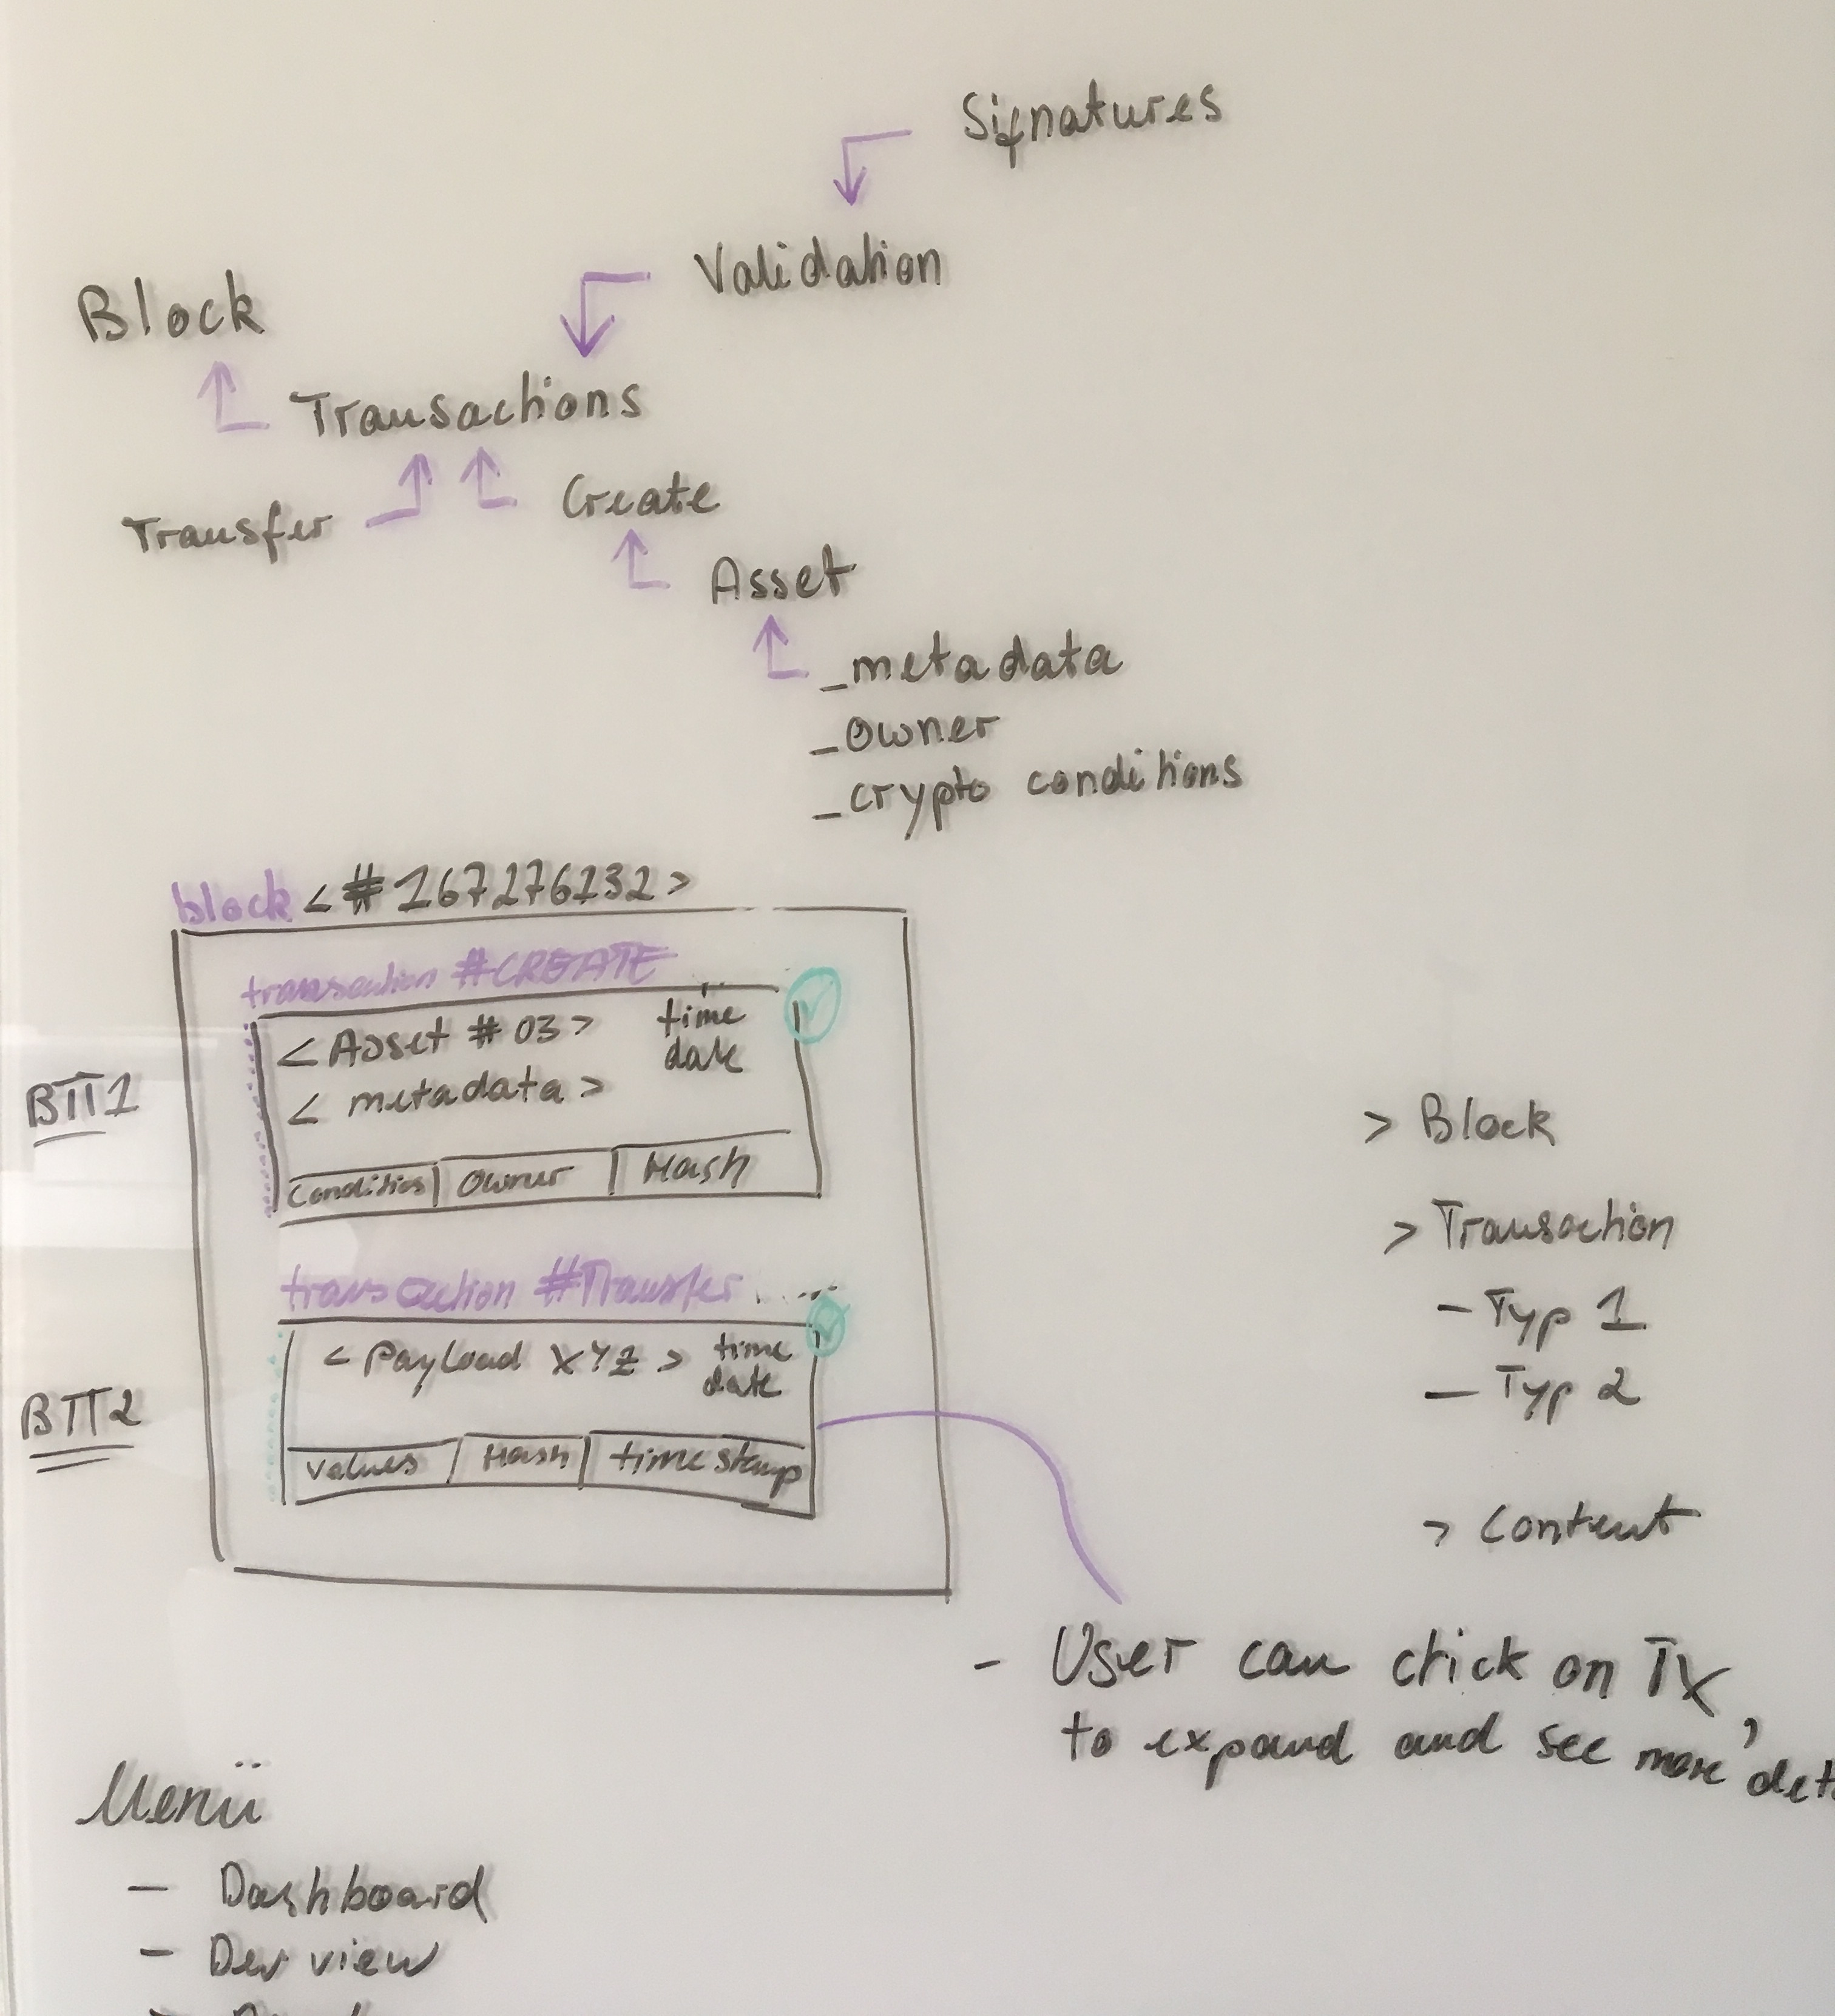 Signatures
Validation
Block
Transactions
Transfer
Create
Asset
_metadata
_owner
_crypto conditions
block <#167276132>
transaction #CREATE
<Asset #03> time
date
< metadata >
Conditions | Owner | Hash
transaction #Transfer
<Payload XYZ> time
date
values | Hash | timestamp
> Block
> Transaction
- Typ 1
- Typ 2
> Content
- User can click on TX,
to expand and see more
Menü
- Dashboard
- Dev view